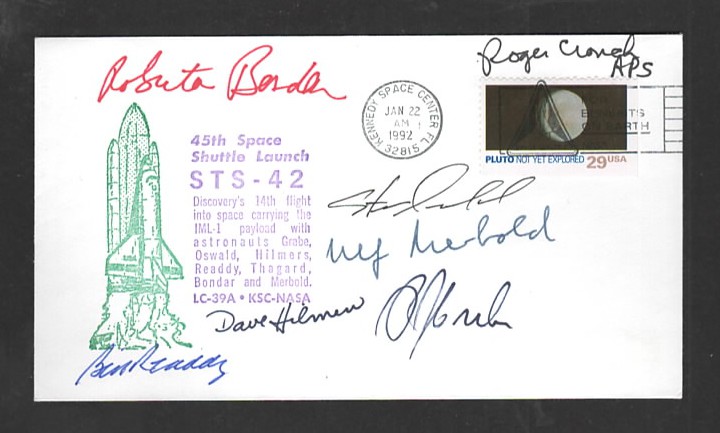 Roger Crouch
APS
Roberta Bondar
KENNEDY SPACE CENTER FL
JAN 22
AM
1992
32815
ON EARTH
PLUTO NOT YET EXPLORED 29 USA
45th Space
Shuttle Launch
STS-42
Discovery's 14th flight
into space carrying the
IML-1 payload with
astronauts Grabe,
Oswald, Hilmers,
Readdy, Thagard,
Bondar and Merbold.
LC-39A • KSC-NASA
Ulf Merbold
Dave Hilmers
Bill Readdy